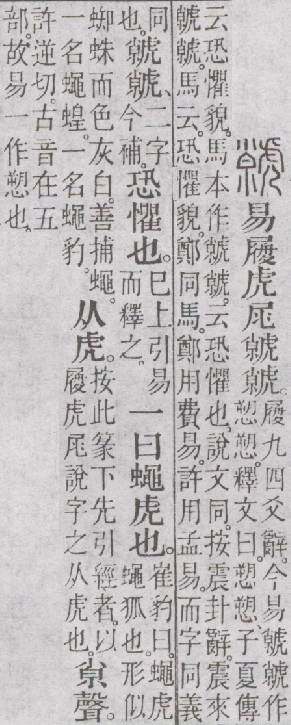 虩 易履虎尾虩虩。履九四爻辭。今易虩虩作愬愬。釋文曰。愬愬、子夏傳
云恐懼貌。馬本作虩虩。云恐懼也。說文同。按震卦辭。震來
虩虩。馬云。恐懼貌。鄭同馬。鄭用費易。許用孟易。而字同義
同也。虩虩、二字今補。恐懼也。巳上引易而釋之。一曰蠅虎也。崔豹曰。蠅虎蠅狐也。形似
蜘蛛而色灰白。善捕蠅。一名蠅蝗。一名蠅豹。从虎。按此篆下先引經者。以履虎尾說字之从虎也。𡭴聲。
許逆切。古音在五
部。故易一作愬也。